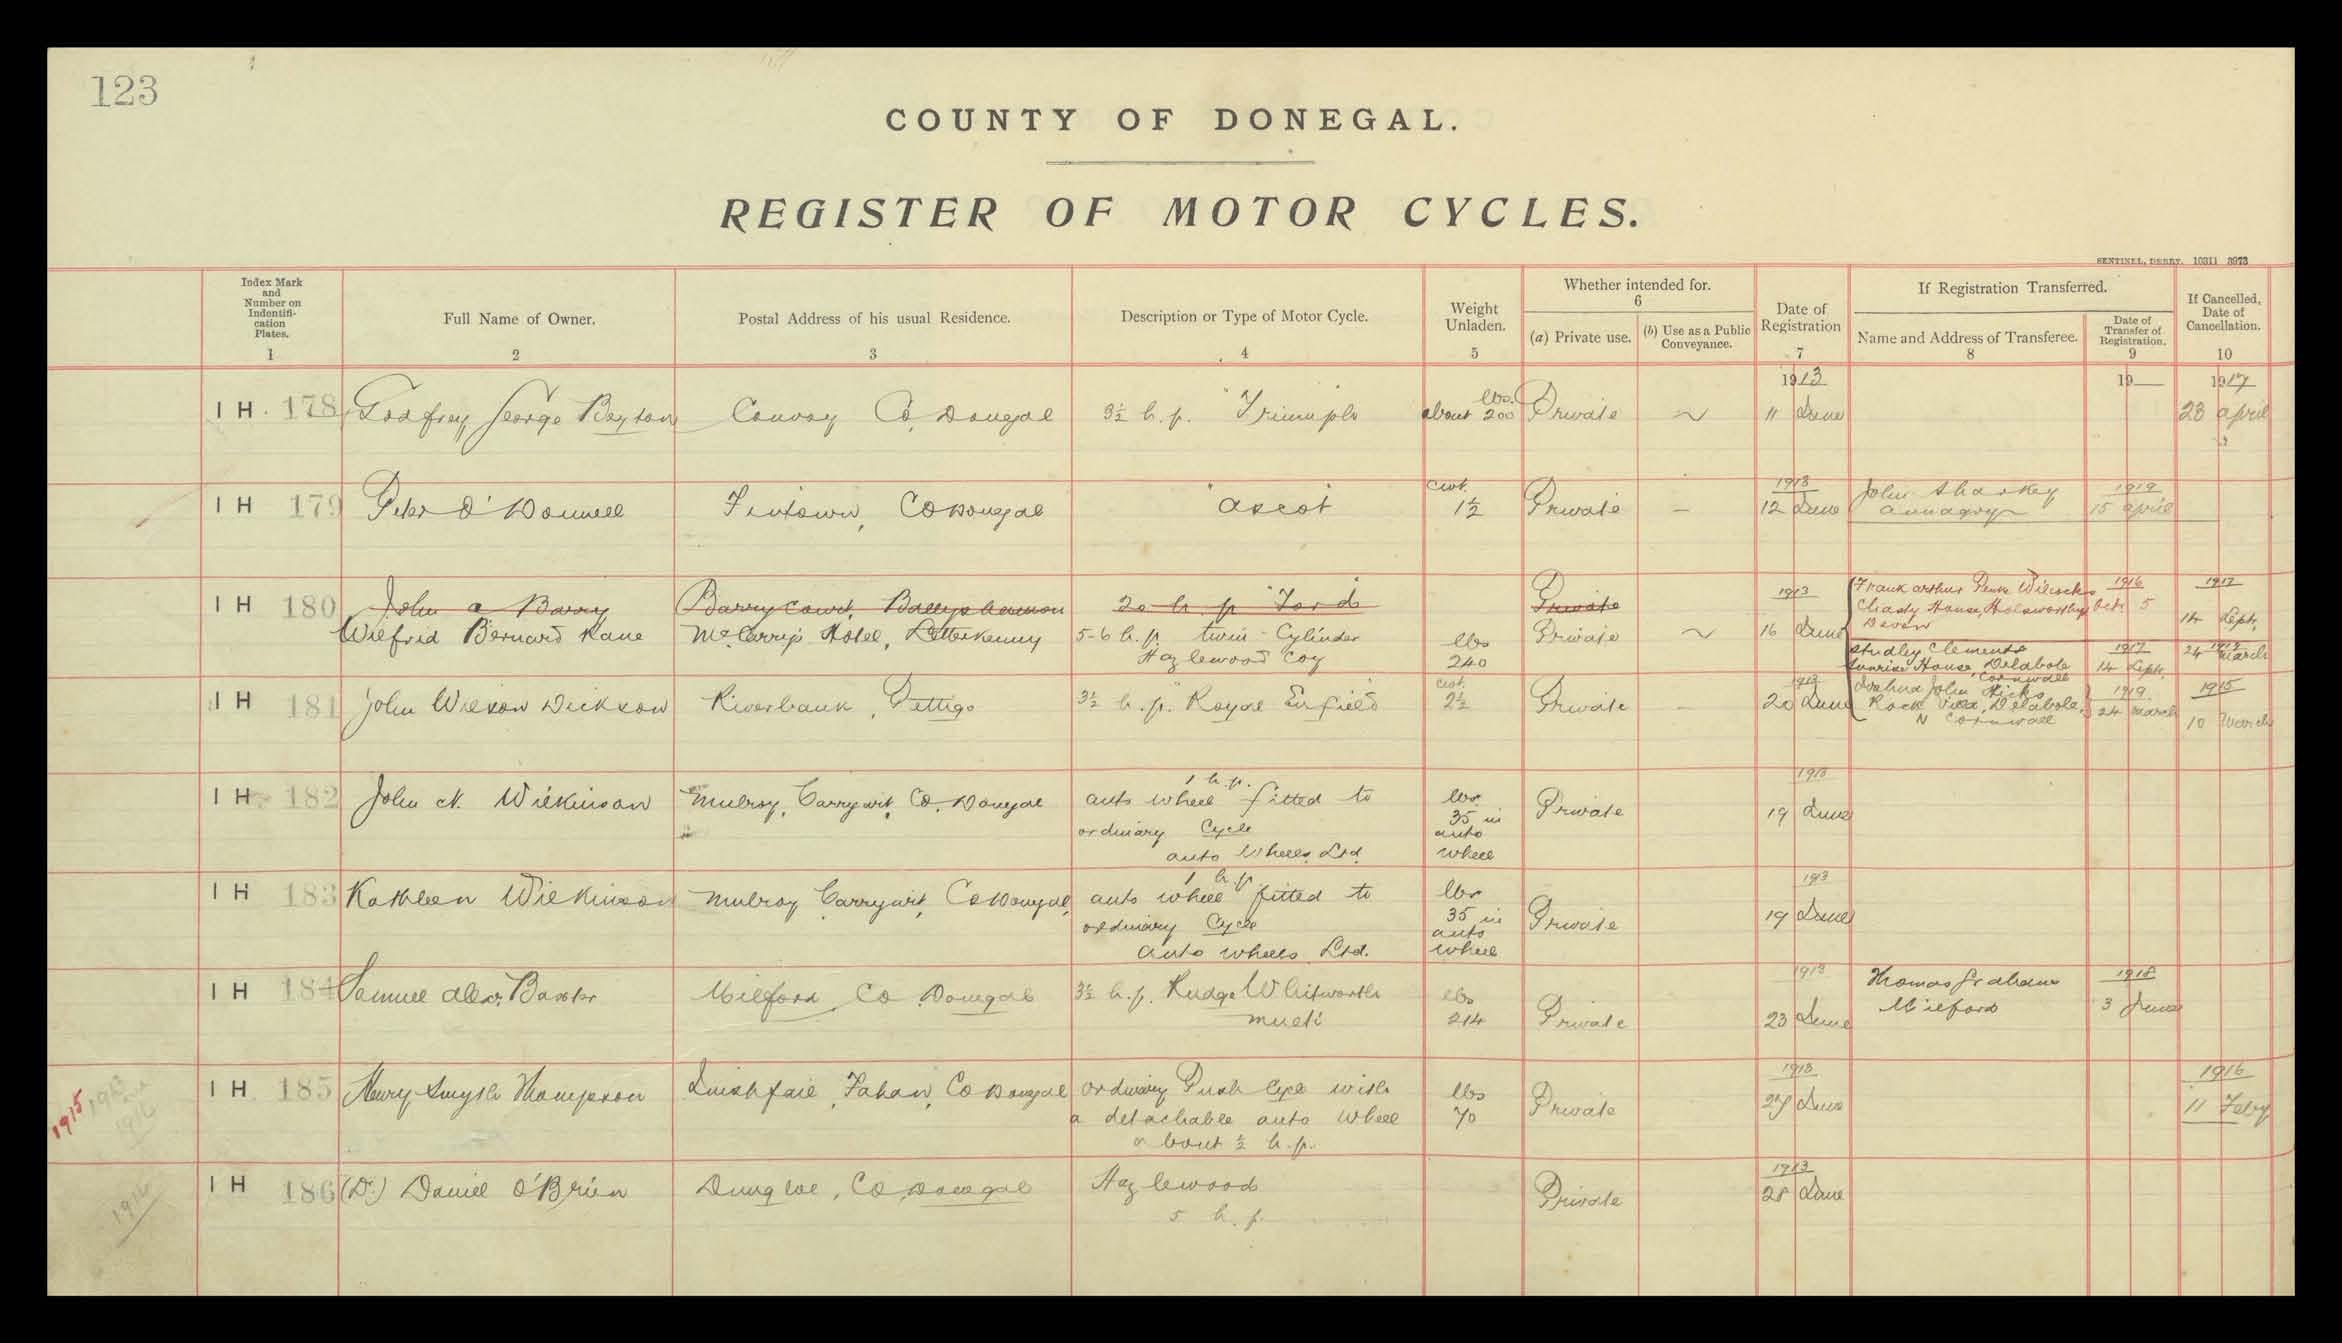 123
COUNTY OF DONEGAL.
REGISTER OF MOTOR CYCLES.
SENTINEL, DERRY. 10311 3973
Index Mark and Number on Indentifi-cation Plates. 1
Full Name of Owner. 2
Postal Address of his usual Residence. 3
Description or Type of Motor Cycle. 4
Weight Unladen. 5
Whether intended for. 6
(a) Private use.
(b) Use as a Public Conveyance.
Date of Registration 7
If Registration Transferred.
Name and Address of Transferee. 8
Date of Transfer of Registration. 9
If Cancelled, Date of Cancellation. 10
1913 19 1917
I H 178 Godfrey George Boyton Convoy Co. Donegal 3½ h.p. "Triumph lbs. about 200 Private ~ 11 June 23 april
I H 179 Peter O'Donnell Fintown, Co Donegal "ascot" cwt. 1½ Private – 1913 12 June John Sharkey annagry 1919 15 april
I H 180 John a Barry Barry court, Ballyshannon 20 h.p "Ford Private
Wilfrid Bernard Kane McCarry's Hotel, Letterkenny 5-6 h.p. twin-Cylinder Hazlewood Coy lbs 240 Private ~ 1913 16 June
Frank arthur Wilcocks 1916 1917
House, Holsworthy Oct. 5
Devon 14 Sept,
Studley Clements 1917 1919
Sunrise House, Delabole 14 Sept. 24 March
Cornwall
Joshua John Hicks 1919
Rock Villa, Delabole, 24 March
N Cornwall
I H 181 John Wilson Dickson Riverbank, Pettigo 3½ h.p. "Royal Enfield cwt. 2½ Private – 1913 20 June 1915 10 March
I H 182 John N. Wilkinson Mulroy, Carrigart, Co. Donegal 1 h.p.
auto wheel fitted to
ordinary Cycle
auto Wheels Ltd. lbs. 35 in auto wheel Private 1913 19 June
I H 183 Kathleen Wilkinson Mulroy Carrigart, Co Donegal, 1 h.p.
auto wheel fitted to
ordinary Cycle
auto wheels Ltd. lbs 35 in auto wheel Private 1913 19 June
I H 184 Samuel alexr. Baxter Milford Co Donegal 3½ h.p. Rudge Whitworth
multi lbs 214 Private 1913 23 June Thomas Graham
Milford 1918 3 June
1915 1913 1916
I H 185 Henry Smyth Thompson Inishfail, Fahan, Co Donegal ordinary Push Cycle with
a detachable auto wheel
about ½ h.p. lbs 70 Private 1913 27 June 1916 11 Feby
1916
I H 186 (Dr.) Daniel O'Brien Dungloe, Co Donegal Hazlewood
5 h.p. Private 1913 28 June